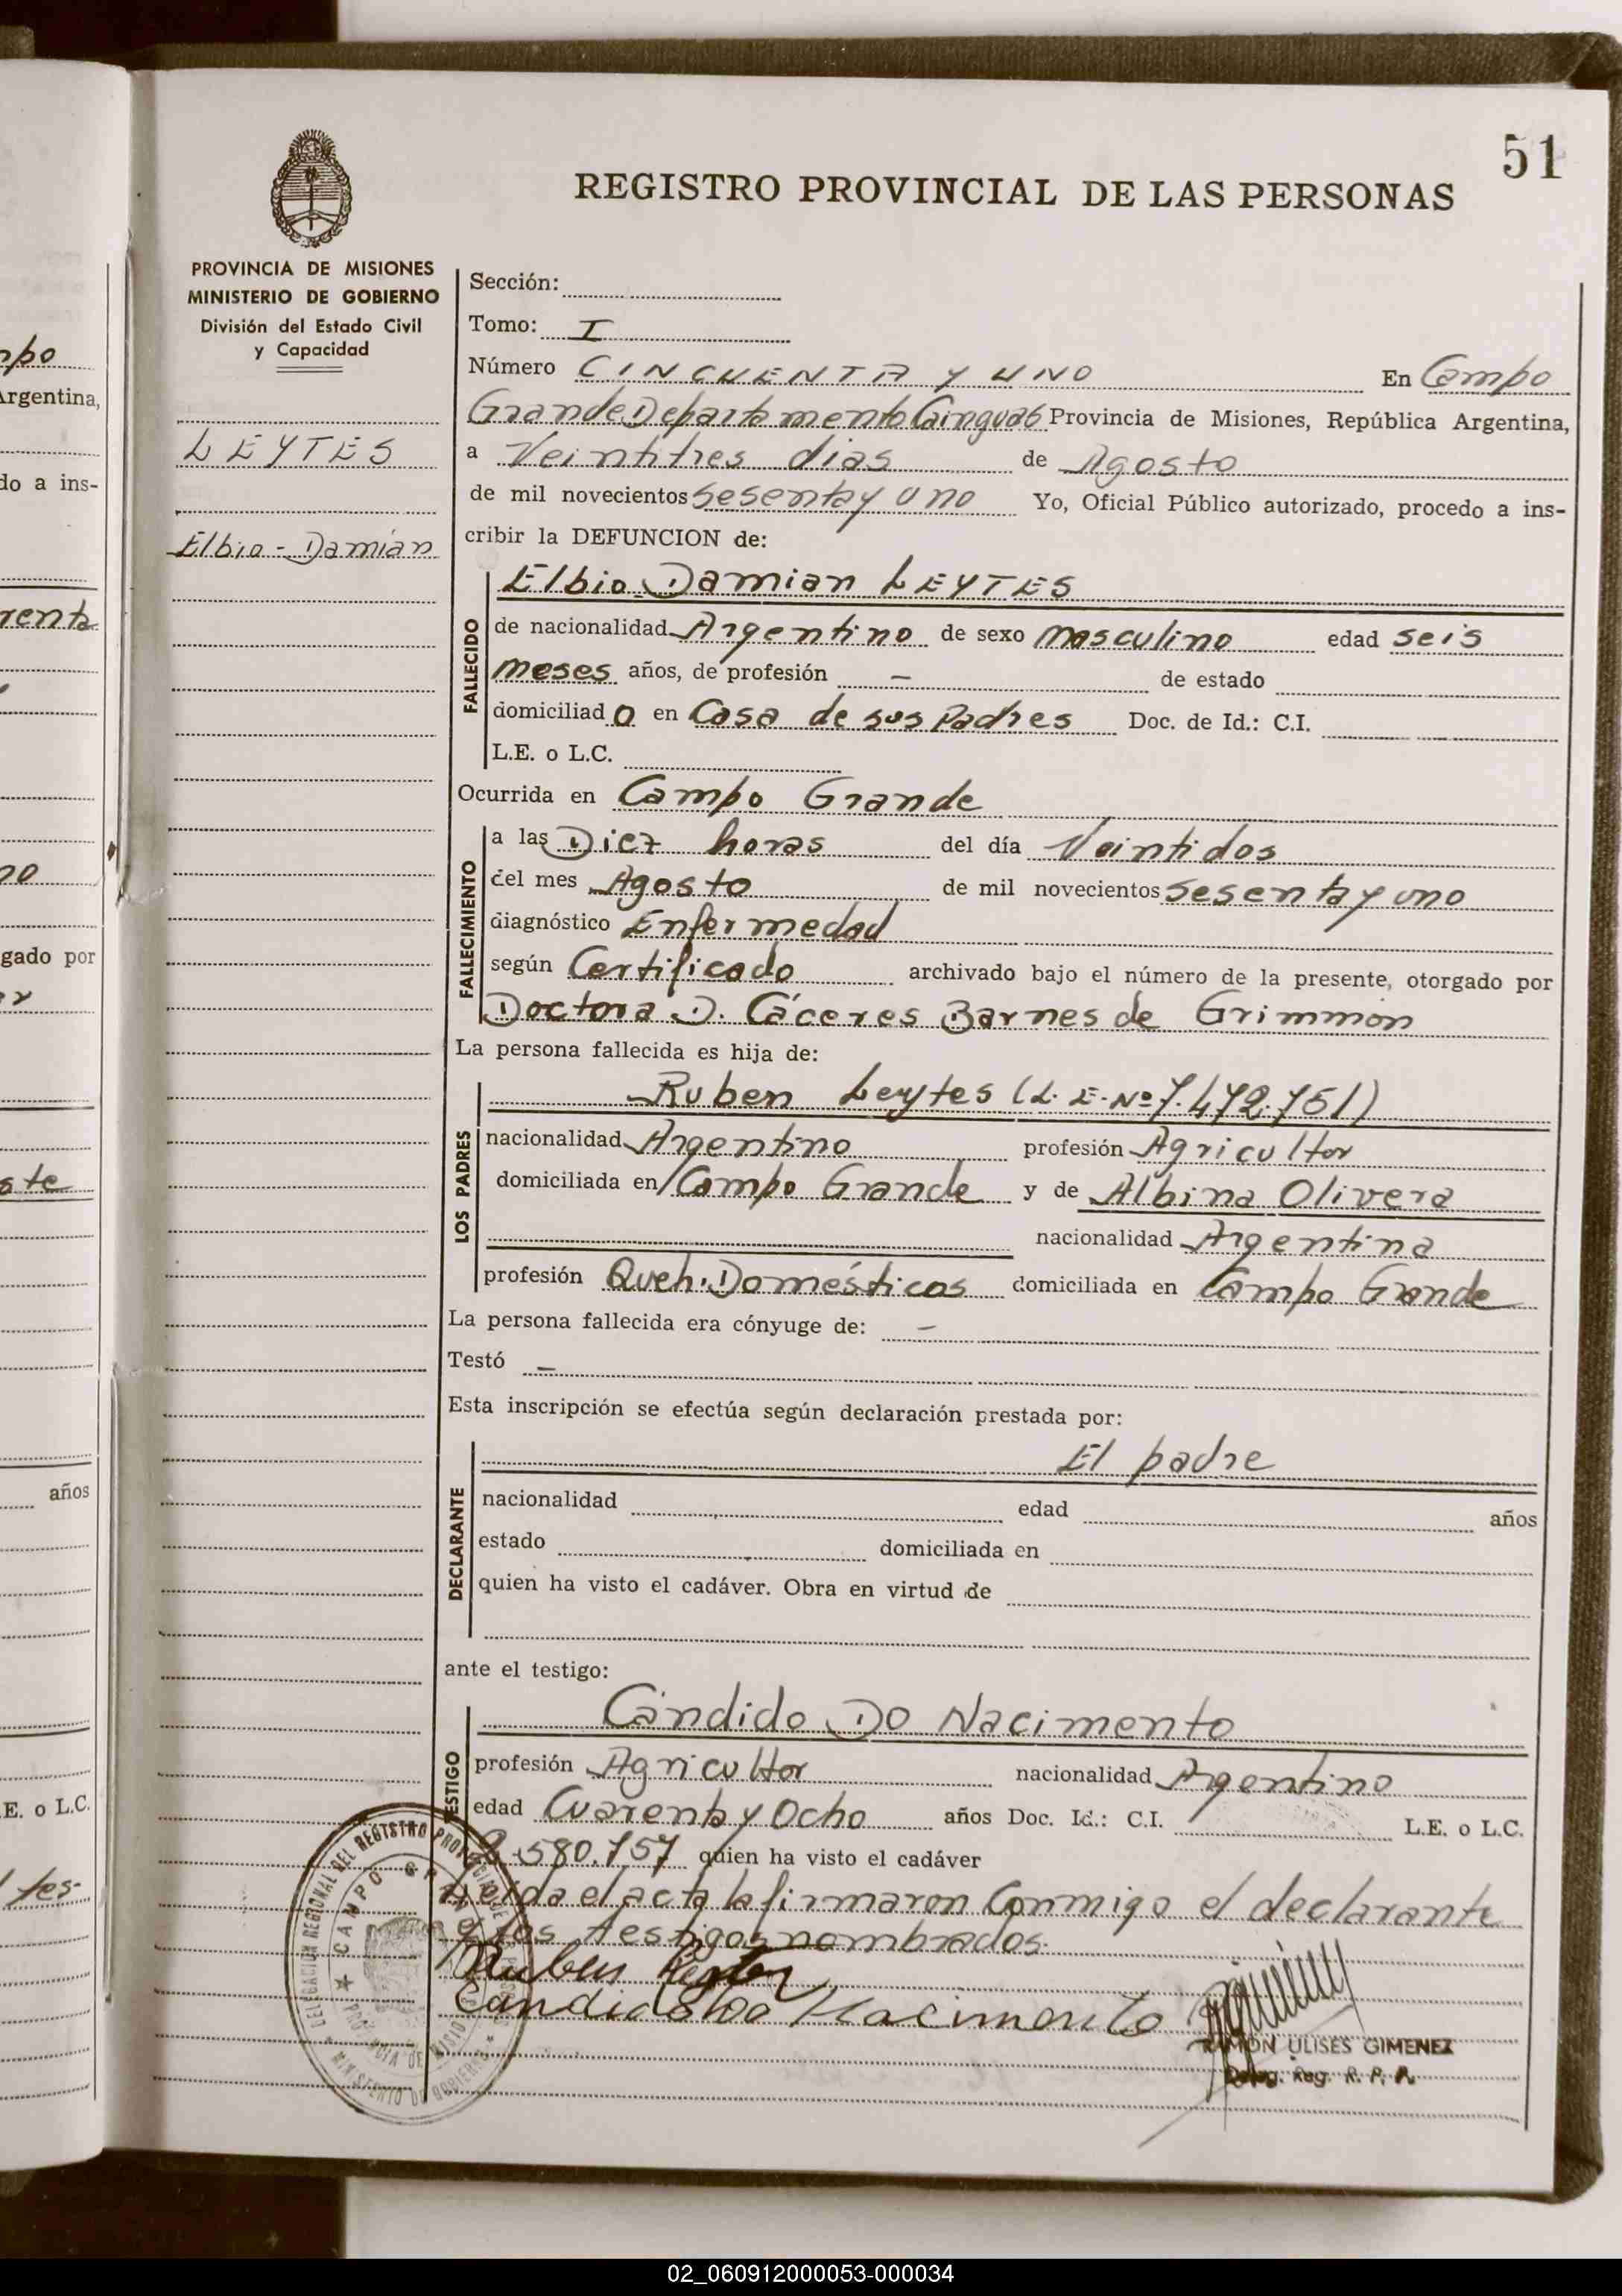 51
REGISTRO PROVINCIAL DE LAS PERSONAS
PROVINCIA DE MISIONES
MINISTERIO DE GOBIERNO
División del Estado Civil
y Capacidad
LEYTES
Elbio - Damián
Sección:
Tomo: I
Número CINCUENTA Y UNO En Campo
Grande Departamento Cainguás Provincia de Misiones, República Argentina,
a Veintitres dias de Agosto
de mil novecientos sesenta y uno Yo, Oficial Público autorizado, procedo a ins-
cribir la DEFUNCION de:
FALLECIDO
Elbio Damian LEYTES
de nacionalidad Argentino de sexo masculino edad seis
meses años, de profesión — de estado
domiciliado en Casa de sus Padres Doc. de Id.: C.I.
L.E. o L.C.
Ocurrida en Campo Grande
FALLECIMIENTO
a las Diez horas del día Veintidos
del mes Agosto de mil novecientos sesenta y uno
diagnóstico Enfermedad
según Certificado archivado bajo el número de la presente, otorgado por
Doctora D. Cáceres Barnes de Grimmon
La persona fallecida es hija de:
LOS PADRES
Ruben Leytes (L.E. Nº 7.472.751)
nacionalidad Argentino profesión Agricultor
domiciliada en Campo Grande y de Albina Olivera
nacionalidad Argentina
profesión Queh. Domésticos domiciliada en Campo Grande
La persona fallecida era cónyuge de: —
Testó —
Esta inscripción se efectúa según declaración prestada por:
DECLARANTE
El padre
nacionalidad edad años
estado domiciliada en
quien ha visto el cadáver. Obra en virtud de
ante el testigo:
TESTIGO
Cándido Do Nacimento
profesión Agricultor nacionalidad Argentino
edad Cuarenta y Ocho años Doc. Id.: C.I. L.E. o L.C.
580.757 quien ha visto el cadáver
Leida el acta la firmaron Conmigo el declarante
y los testigos nombrados.
Ruben Leytes
Candido Do Nacimento
RAMON ULISES GIMENEZ
Deleg. Reg. R. P. P.
DELEGACION REGIONAL DEL REGISTRO PROVINCIAL DE LAS PERSONAS
CAMPO GRANDE
PROVINCIA DE MISIONES
MINISTERIO DE GOBIERNO
mpo
Argentina,
do a ins-
renta
no
gado por
ate
años
E. o L.C.
tes-
02_060912000053-000034